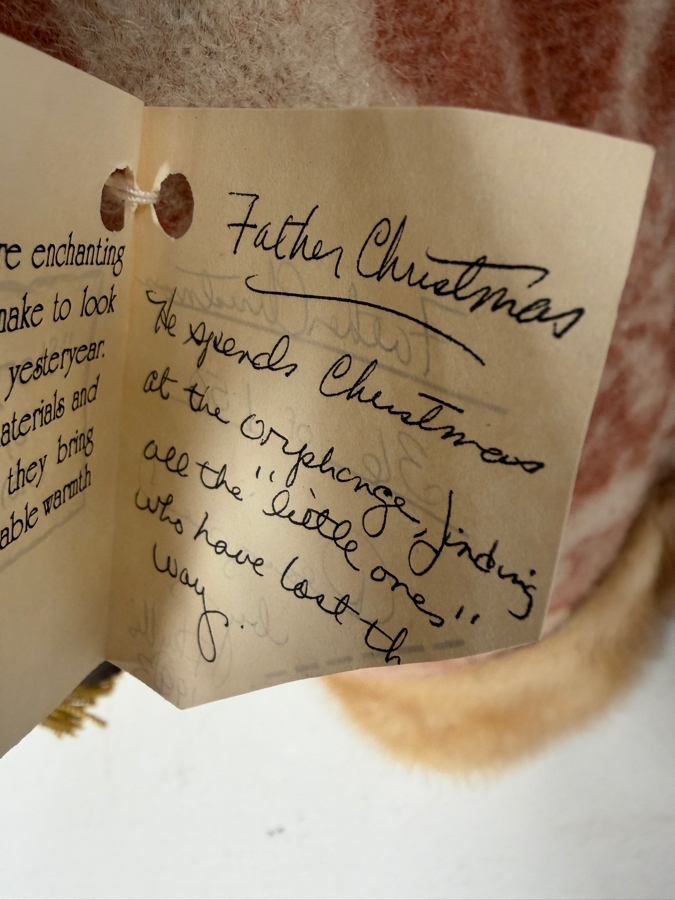 re enchanting
make to look
yesteryear.
aterials and
they bring
able warmth
Father Christmas
He spends Christmas
at the orphange, finding
all the "little ones"
who have lost th
way.